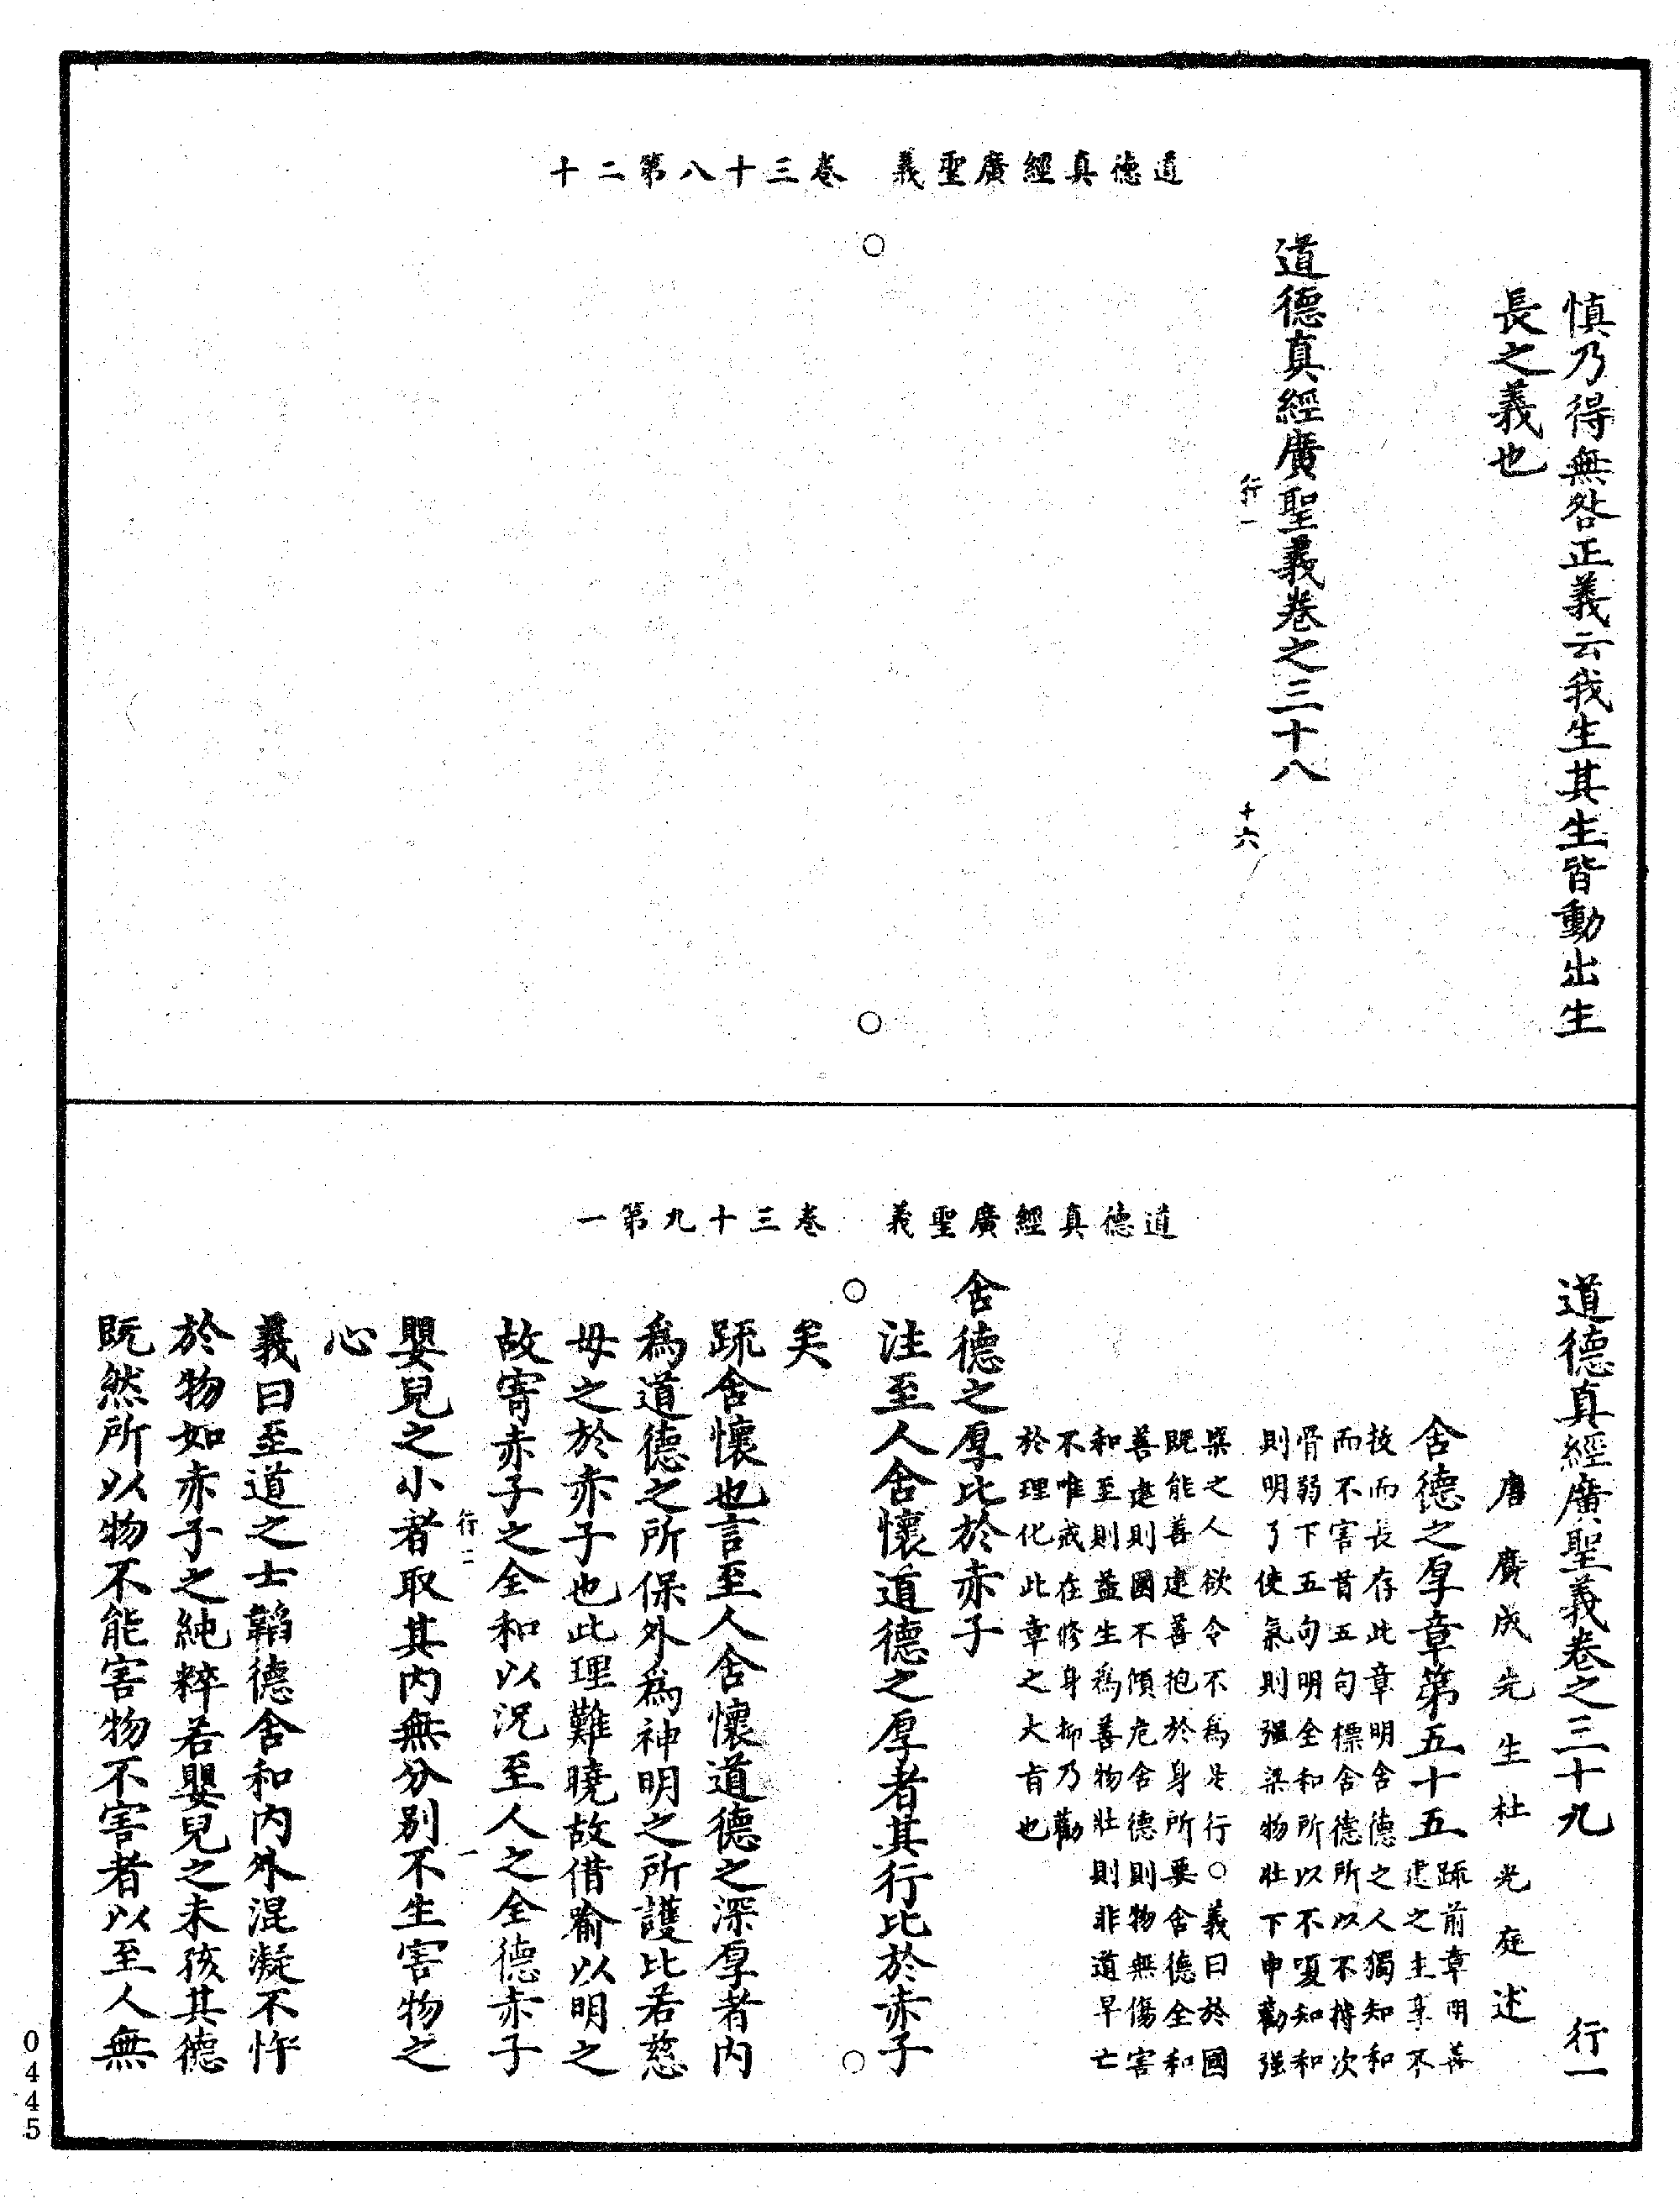 道德真經廣聖義　卷三十八第二十
慎乃得無咎正義云我生其生皆動出生
長之義也
道德真經廣聖義卷之三十八
行一　十六
道德真經廣聖義　卷三十九第一
道德真經廣聖義卷之三十九　行一
唐廣成先生杜光庭述
含德之厚章第五十五
疏前章明善
建之主享不
拔而長存此章明含德之人獨知和
而不害首五句標含德所以不搏次
骨弱下五句明全和所以不嗄知和
則明了使氣則强梁物壯下申勸强
梁之人欲令不為是行○義曰於國
既能善建善抱於身所要含德全和
善建則國不傾危含德則物無傷害
和至則益生為善物壯則非道早亡
不唯戒在修身抑乃勸
於理化此章之大旨也
含德之厚比於赤子
注至人含懷道德之厚者其行比於赤子
矣
疏含懷也言至人含懷道德之深厚者内
為道德之所保外為神明之所護比若慈
母之於赤子也此理難曉故借喻以明之
故寄赤子之全和以況至人之全德赤子
行二　一
嬰兒之小者取其内無分别不生害物之
心
義曰至道之士韜德含和内外混凝不忤
於物如赤子之純粹若嬰兒之未孩其德
既然所以物不能害物不害者以至人無
0445